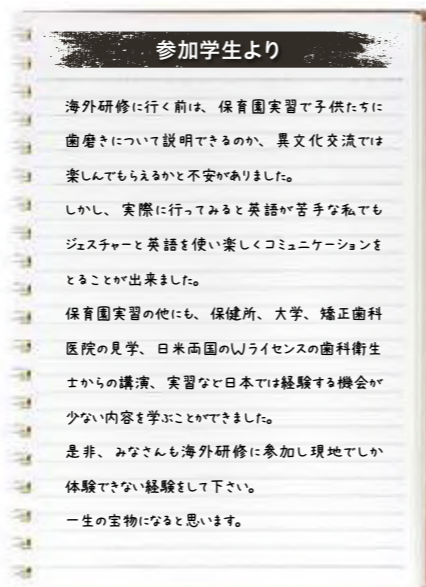 参加学生より
海外研修に行く前は、保育園実習で子供たちに
歯磨きについて説明できるのか、異文化交流では
楽しんでもらえるかと不安がありました。
しかし、実際に行ってみると英語が苦手な私でも
ジェスチャーと英語を使い楽しくコミュニケーションを
とることが出来ました。
保育園実習の他にも、保健所、大学、矯正歯科
医院の見学、日米両国のWライセンスの歯科衛生
士からの講演、実習など日本では経験する機会が
少ない内容を学ぶことができました。
是非、みなさんも海外研修に参加し現地でしか
体験できない経験をして下さい。
一生の宝物になると思います。